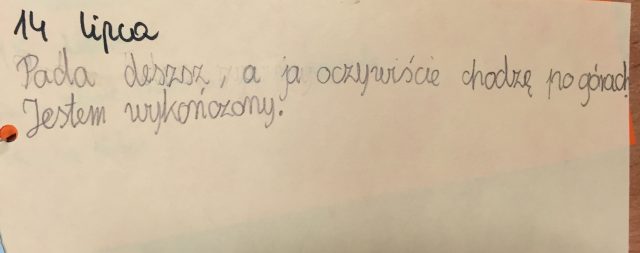 14 lipca
Pada deszsz, a ja oczywiście chodzę po górach
Jestem wykończony.